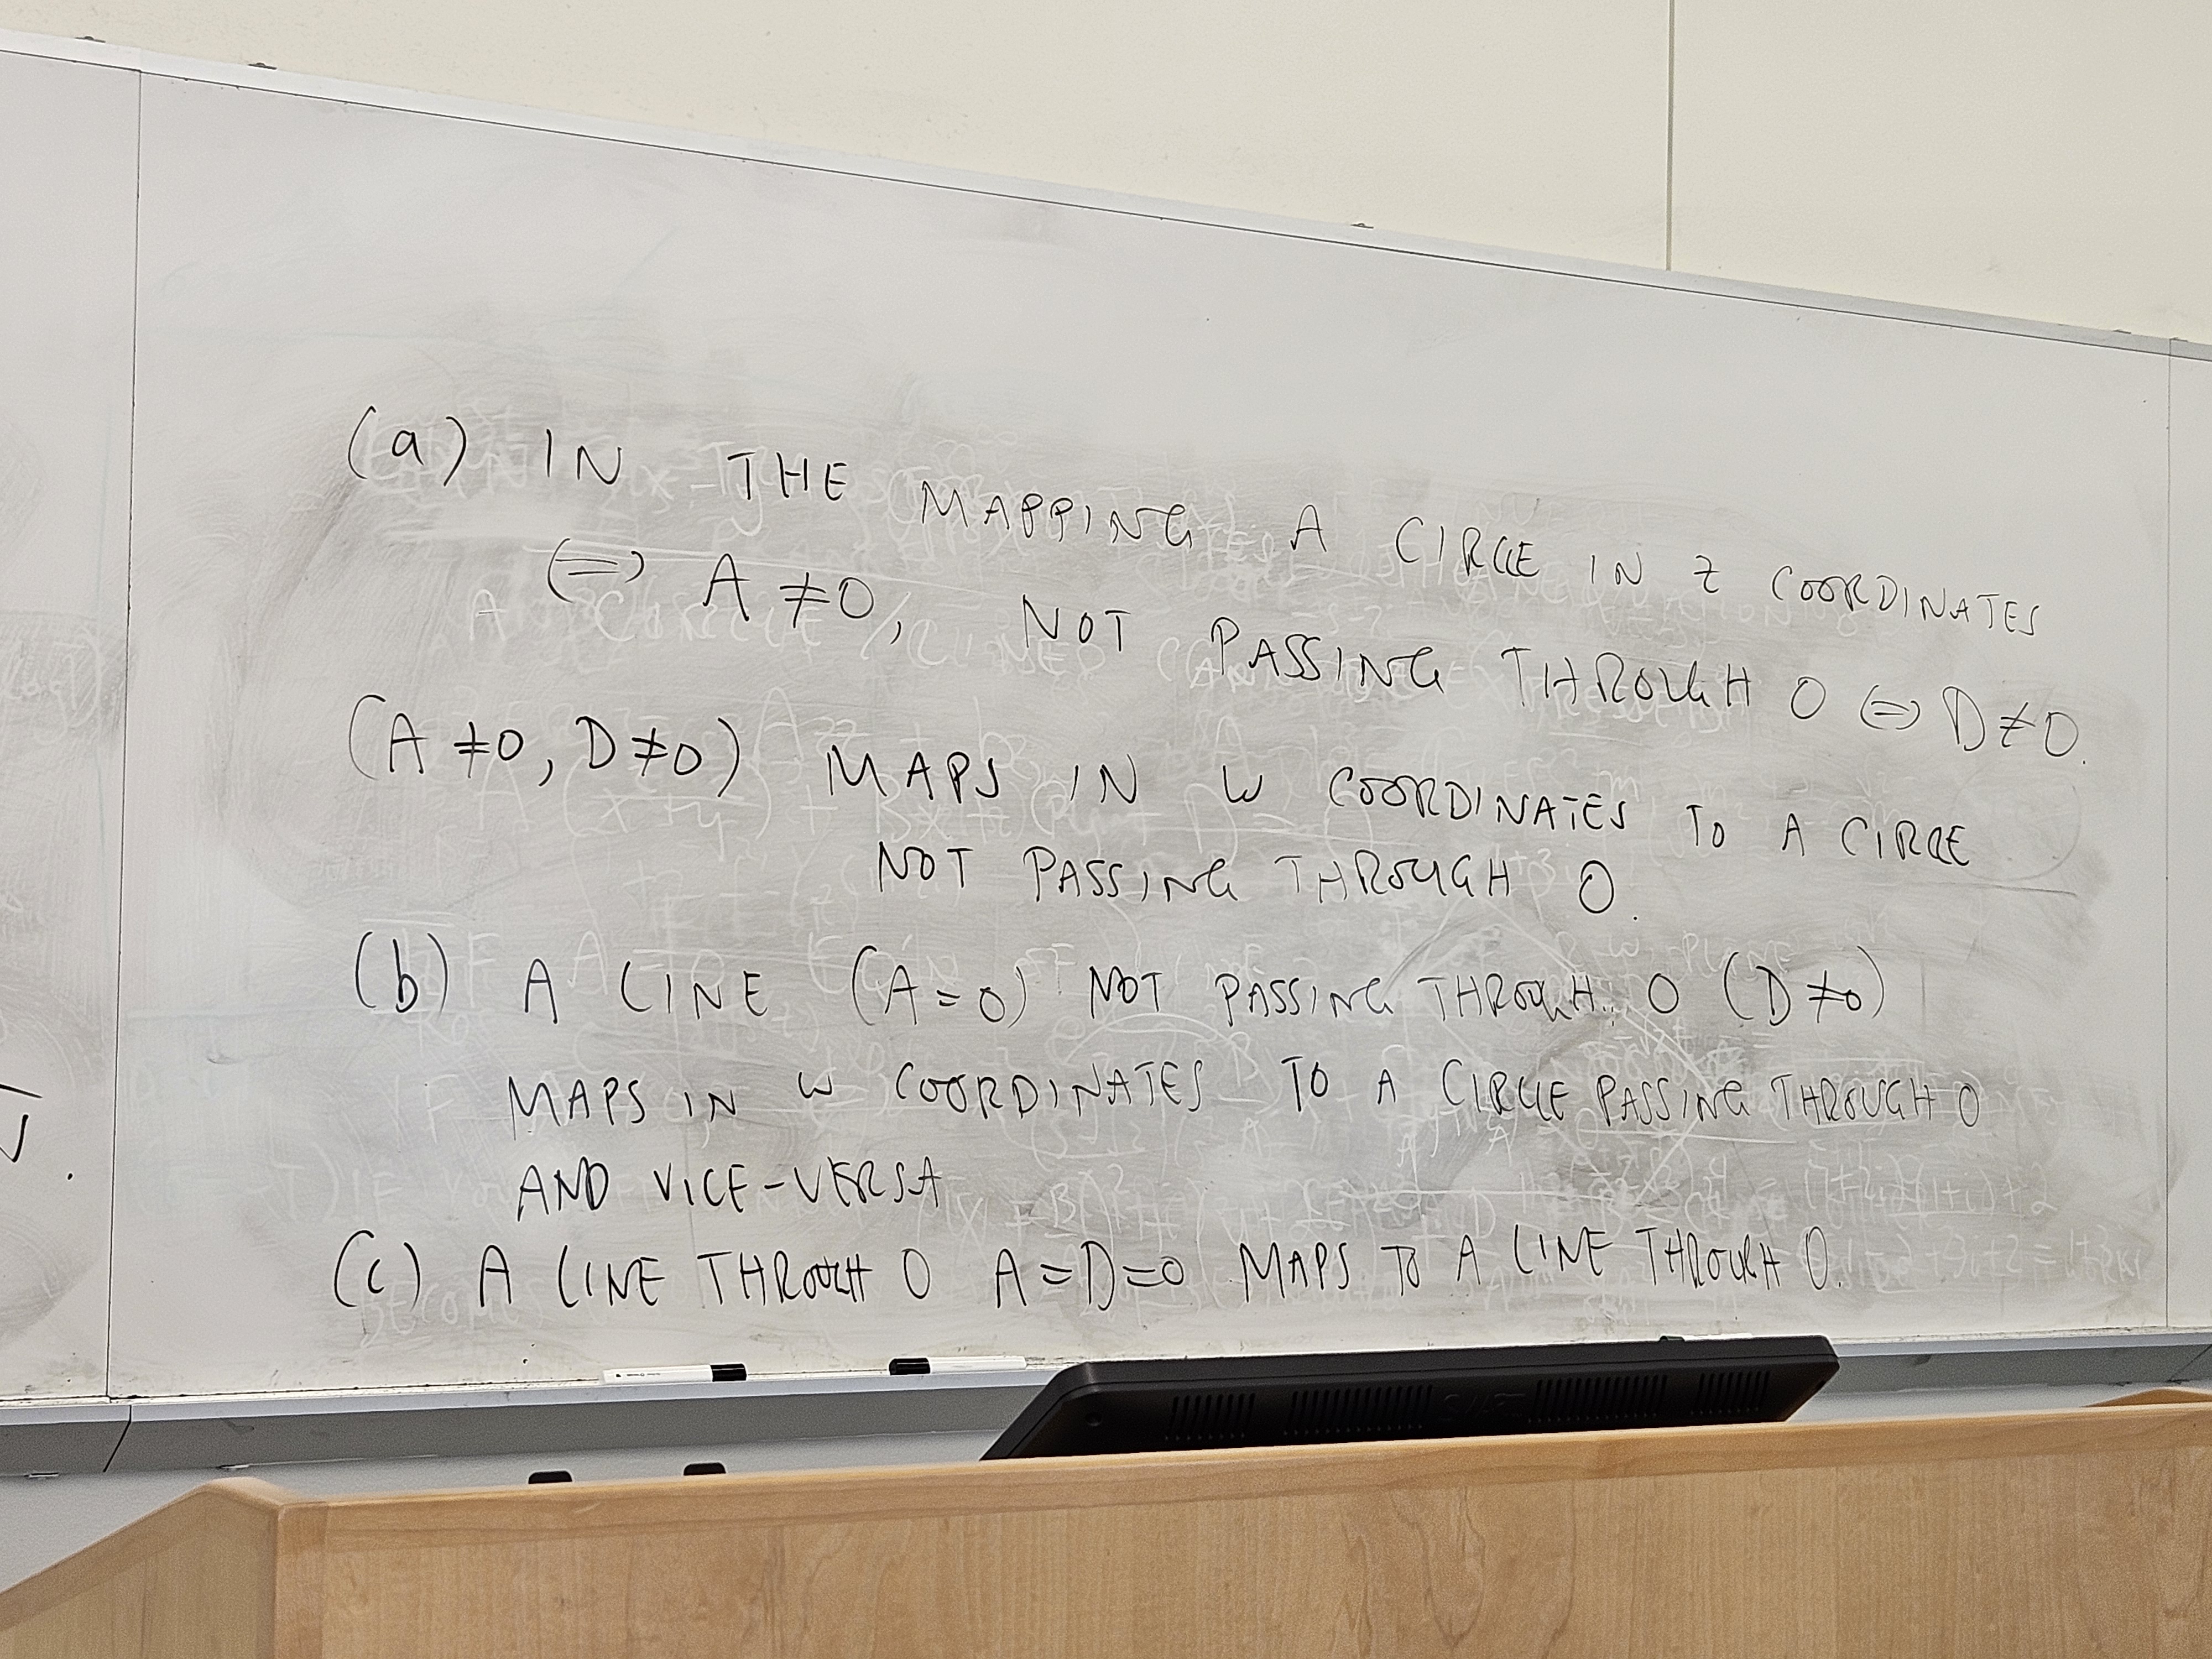 (a) IN THE MAPPING A CIRCLE IN z COORDINATES
⇔ A ≠ 0, NOT PASSING THROUGH 0 ⇔ D ≠ 0.
(A ≠ 0, D ≠ 0) MAPS IN W COORDINATES TO A CIRCLE
NOT PASSING THROUGH 0.
(b) A LINE (A = 0) NOT PASSING THROUGH 0 (D ≠ 0)
MAPS IN W COORDINATES TO A CIRCLE PASSING THROUGH 0
AND VICE-VERSA
(c) A LINE THROUGH 0 A = D = 0 MAPS TO A LINE THROUGH 0.